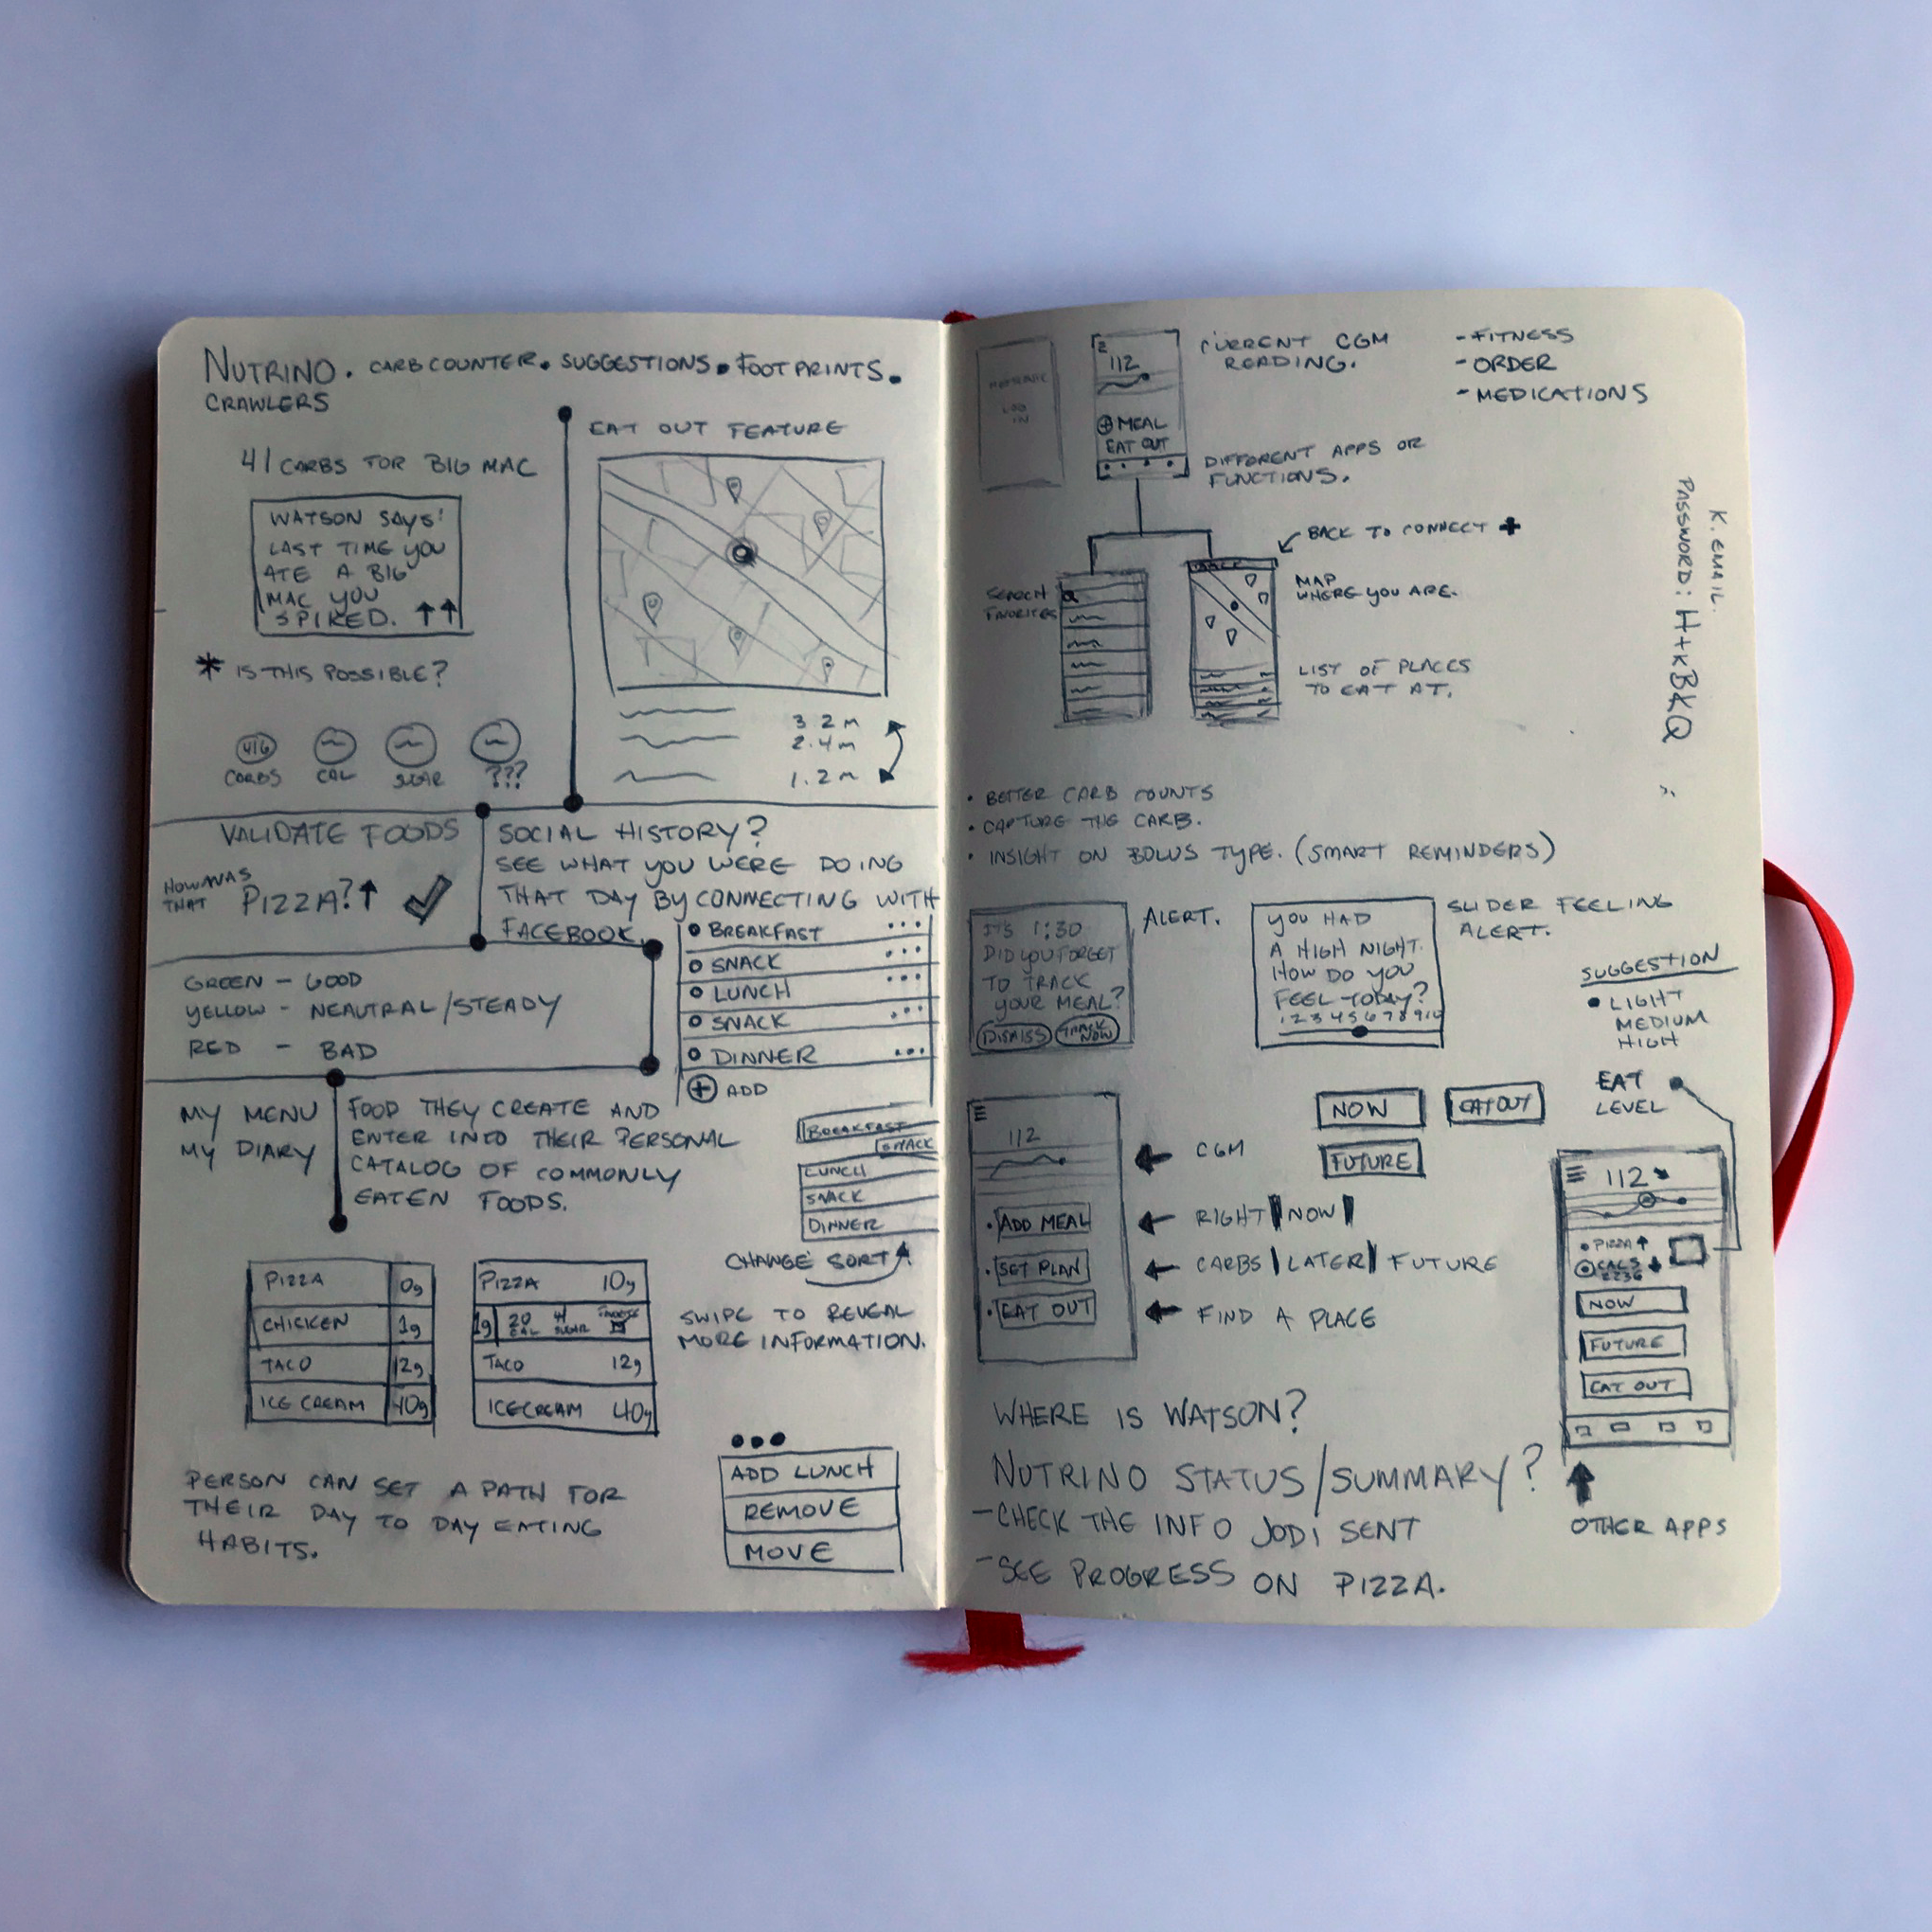 NUTRINO. CARB COUNTER. SUGGESTIONS. FOOT PRINTS.
CRAWLERS
41 CARBS FOR BIG MAC
WATSON SAYS!
LAST TIME YOU
ATE A BIG
MAC YOU
SPIKED. ↑↑
* IS THIS POSSIBLE?
CARBS CAL SUGAR ???
EAT OUT FEATURE
3.2 m
2.4 m
1.2 m
VALIDATE FOODS
HOW WAS
THAT PIZZA? ↑
SOCIAL HISTORY?
SEE WHAT YOU WERE DOING
THAT DAY BY CONNECTING WITH
FACEBOOK.
GREEN - GOOD
YELLOW - NEAUTRAL/STEADY
RED - BAD
BREAKFAST ...
SNACK ...
LUNCH ...
SNACK ...
DINNER ...
+ ADD
MY MENU
MY DIARY
FOOD THEY CREATE AND
ENTER INTO THEIR PERSONAL
CATALOG OF COMMONLY
EATEN FOODS.
BREAKFAST
SNACK
LUNCH
SNACK
DINNER
CHANGE SORT
PIZZA 0g
CHICKEN 1g
TACO 12g
ICE CREAM 40g
PIZZA 10g
1g 20 CAL 4 SUGAR
TACO 12g
ICECREAM 40g
SWIPE TO REVEAL
MORE INFORMATION.
PERSON CAN SET A PATH FOR
THEIR DAY TO DAY EATING
HABITS.
ADD LUNCH
REMOVE
MOVE
LOG
IN
112
+ MEAL
EAT OUT
CURRENT CGM
READING.
- FITNESS
- ORDER
- MEDICATIONS
DIFFERENT APPS OR
FUNCTIONS.
BACK TO CONNECT +
SEARCH
FAVORITES
MAP
WHERE YOU ARE.
LIST OF PLACES
TO EAT AT.
K. EMAIL.
PASSWORD: H+KBKQ
• BETTER CARB COUNTS
• CAPTURE THE CARB.
• INSIGHT ON BOLUS TYPE. (SMART REMINDERS)
IT'S 1:30
DID YOU FORGET
TO TRACK
YOUR MEAL?
DISMISS TRACK NOW
ALERT.
YOU HAD
A HIGH NIGHT.
HOW DO YOU
FEEL TODAY?
1 2 3 4 5 6 7 8 9 10
SLIDER FEELING
ALERT.
SUGGESTION
• LIGHT
MEDIUM
HIGH
EAT
LEVEL
NOW
EAT OUT
FUTURE
112
ADD MEAL
SET PLAN
EAT OUT
CGM
RIGHT | NOW |
CARBS | LATER | FUTURE
FIND A PLACE
112
PIZZA ↑
CALS
2236
NOW
FUTURE
EAT OUT
OTHER APPS
WHERE IS WATSON?
NUTRINO STATUS/SUMMARY?
- CHECK THE INFO JODI SENT
- SEE PROGRESS ON PIZZA.